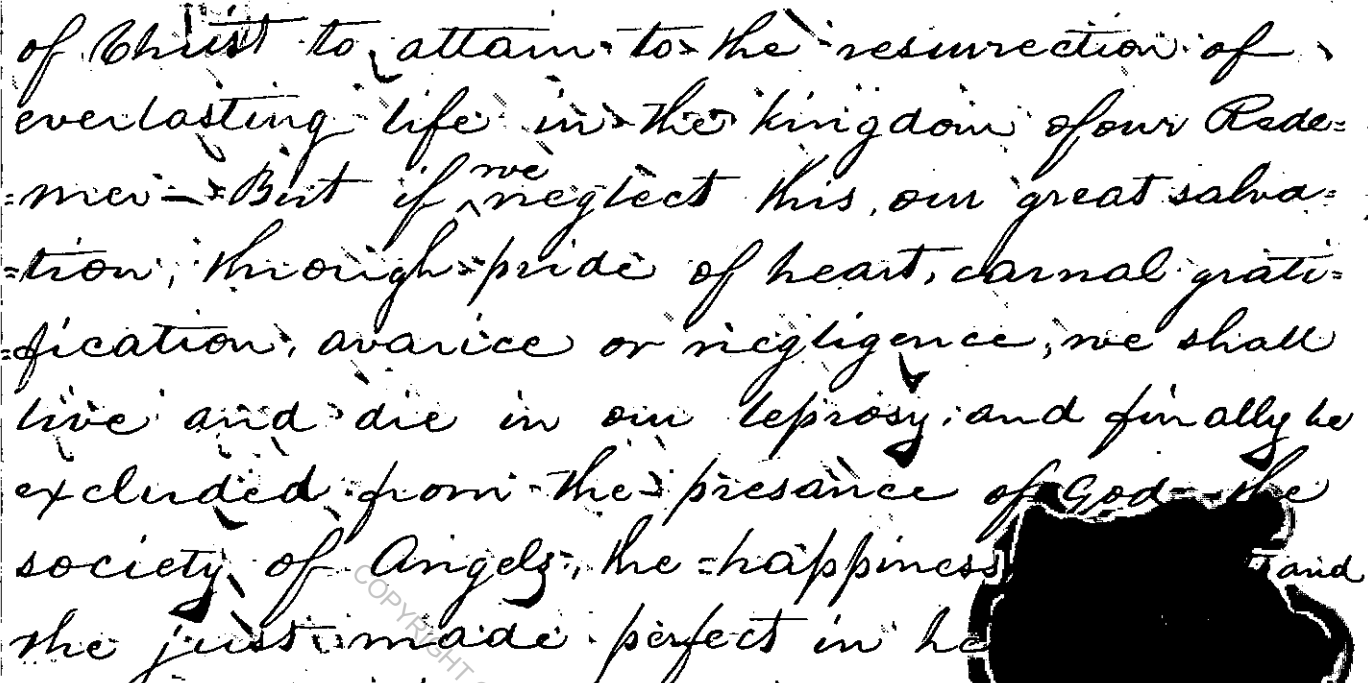 of Christ to attain to the resurrection of
everlasting life in the kingdom of our Rede=
=mer – But if we neglect this, our great salva=
=tion, through pride of heart, carnal grati=
=fication, avarice or negligence, we shall
live and die in our leprosy, and finally be
excluded from the presance of God the
society of Angels, the happiness and
the just made perfect in
COPYRIGHT